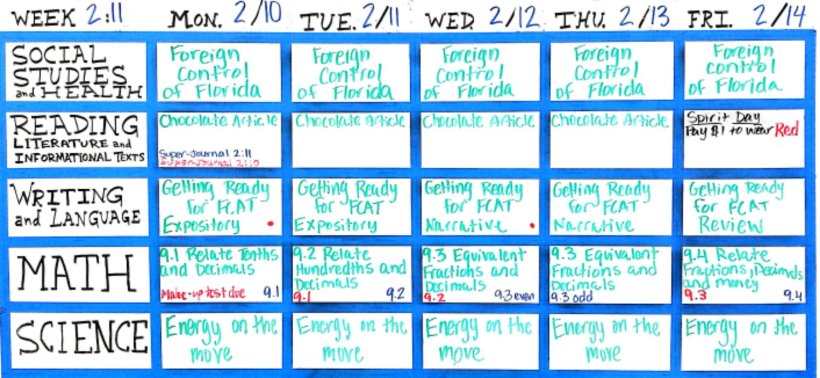 WEEK 2:11 MON. 2/10 TUE. 2/11 WED. 2/12 THU. 2/13 FRI. 2/14
SOCIAL
STUDIES
and HEALTH
Foreign
Control
of Florida
Foreign
Control
of Florida
Foreign
Control
of Florida
Foreign
Control
of Florida
Foreign
Control
of Florida
READING
LITERATURE and
INFORMATIONAL TEXTS
Chocolate Article
Super-Journal 2:11
Super-Journal 2:10
Chocolate Article
Chocolate Article
Chocolate Article
Spirit Day
Pay $1 to wear Red
WRITING
and LANGUAGE
Getting Ready
for FCAT
Expository
Getting Ready
for FCAT
Expository
Getting Ready
for FCAT
Narrative
Getting Ready
for FCAT
Narrative
Getting Ready
for FCAT
Review
MATH
9.1 Relate Tenths
and Decimals
Make-up test due 9.1
9.2 Relate
Hundredths and
Decimals
9.1 9.2
9.3 Equivalent
Fractions and
Decimals
9.2 9.3 even
9.3 Equivalent
Fractions and
Decimals
9.3 odd
9.4 Relate
Fractions, Decimals
and money
9.3 9.4
SCIENCE
Energy on the
move
Energy on the
move
Energy on the
move
Energy on the
move
Energy on the
move